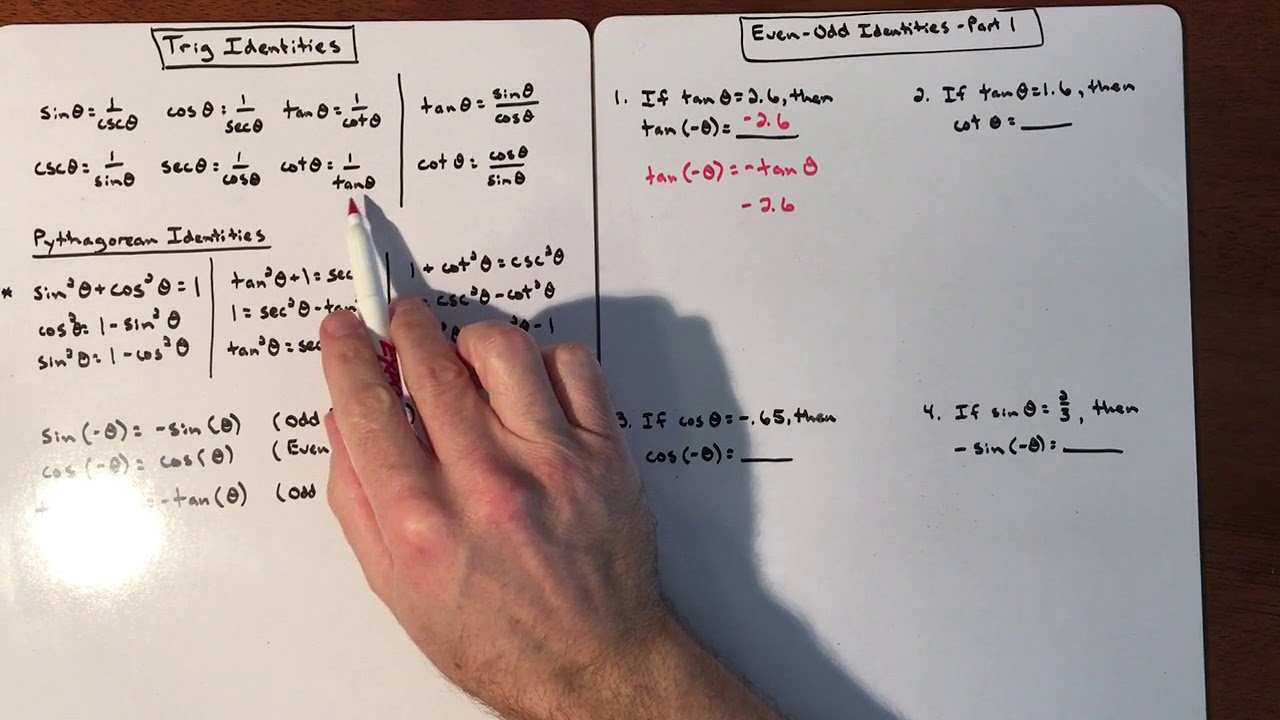 Trig Identities
sinθ = 1/cscθ cosθ = 1/secθ tanθ = 1/cotθ tanθ = sinθ/cosθ
cscθ = 1/sinθ secθ = 1/cosθ cotθ = 1/tanθ cotθ = cosθ/sinθ
Pythagorean Identities
* sin²θ + cos²θ = 1
cos²θ = 1 - sin²θ
sin²θ = 1 - cos²θ
tan²θ + 1 = sec
1 = sec²θ - tan
tan²θ = sec
1 + cot²θ = csc²θ
= csc²θ - cot²θ
²θ - 1
sin(-θ) = -sin(θ) (Odd
cos(-θ) = cos(θ) (Even
= -tan(θ) (Odd
Even-Odd Identities - Part 1
1. If tanθ = 2.6, then
tan(-θ) = -2.6
tan(-θ) = -tanθ
-2.6
2. If tanθ = 1.6, then
cot θ = ___
3. If cosθ = -.65, then
cos(-θ) = ___
4. If sinθ = 2/3, then
-sin(-θ) = ___